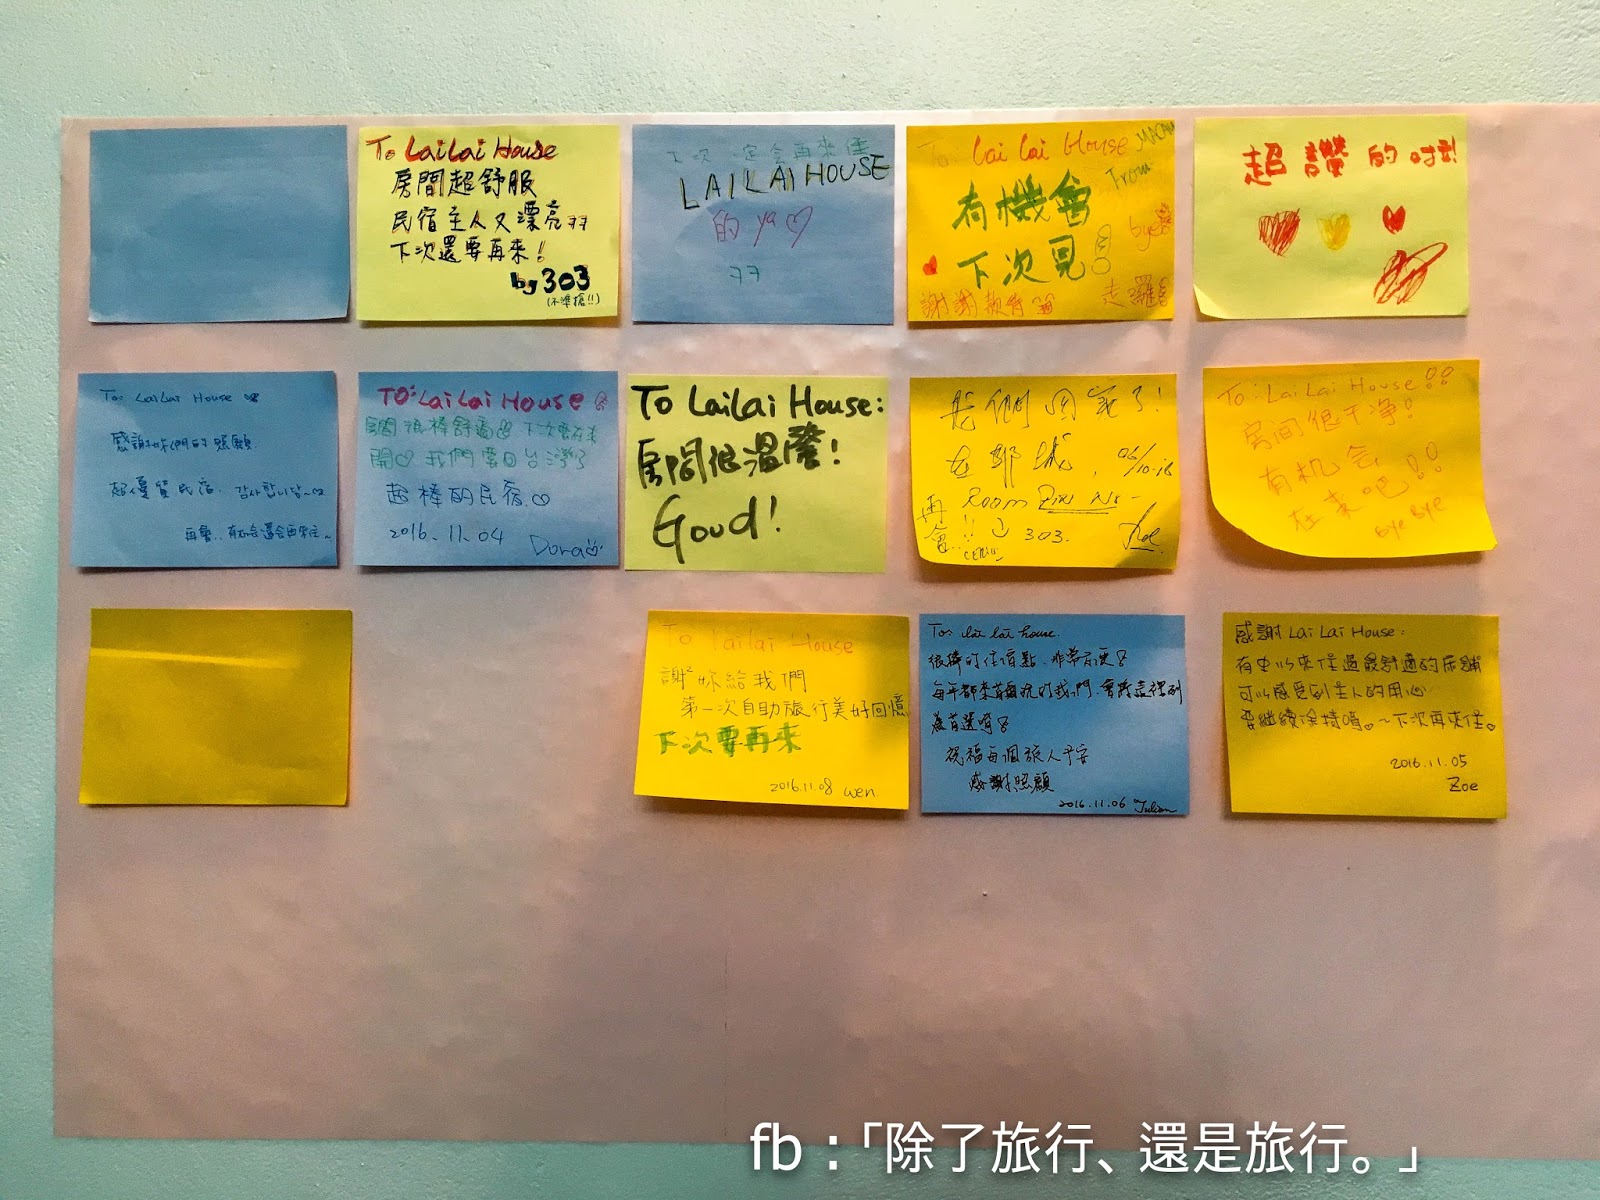 To LaiLai House
房間超舒服
民宿主人又漂亮ㄋㄋ
下次還要再來!
by 303
(不準搶!!)
下次一定會再來住
LAILAI HOUSE
的 ya♡
To: Lai Lai House
From
有機會
下次見
bye
謝謝款待
走囉
超讚的时刻
To: LaiLai House
感謝妳們的照顧
超優質民宿. 감사합니당~♡
再會.. 有机会還會再來住~
TO: LaiLai House
房間很棒舒適 下次要再來
開♡ 我們要回台灣了
超棒的民宿♡
2016.11.04 Dora
To LaiLai House:
房間很溫馨!
Good!
我們回家了!
再會
Room
303.
To: LaiLai House!!
房间很干净!
有机会
在来吧!!
Bye Bye
To lailai House
謝²妳給我們
第一次自助旅行美好回憶
下次要再來
2016.11.08 wen
To: lai lai house.
很棒的住宿點、非常方便
每年都來的我們、會將這裡列
為首選唷
祝福每個旅人平安
感謝照顧
2016.11.06 Julian
感謝 Lai Lai House:
有史以來住過最舒適的床舖
可以感受到主人的用心
要繼續保持唷。~下次再來住。
2016.11.05
Zoe
fb:「除了旅行、還是旅行。」